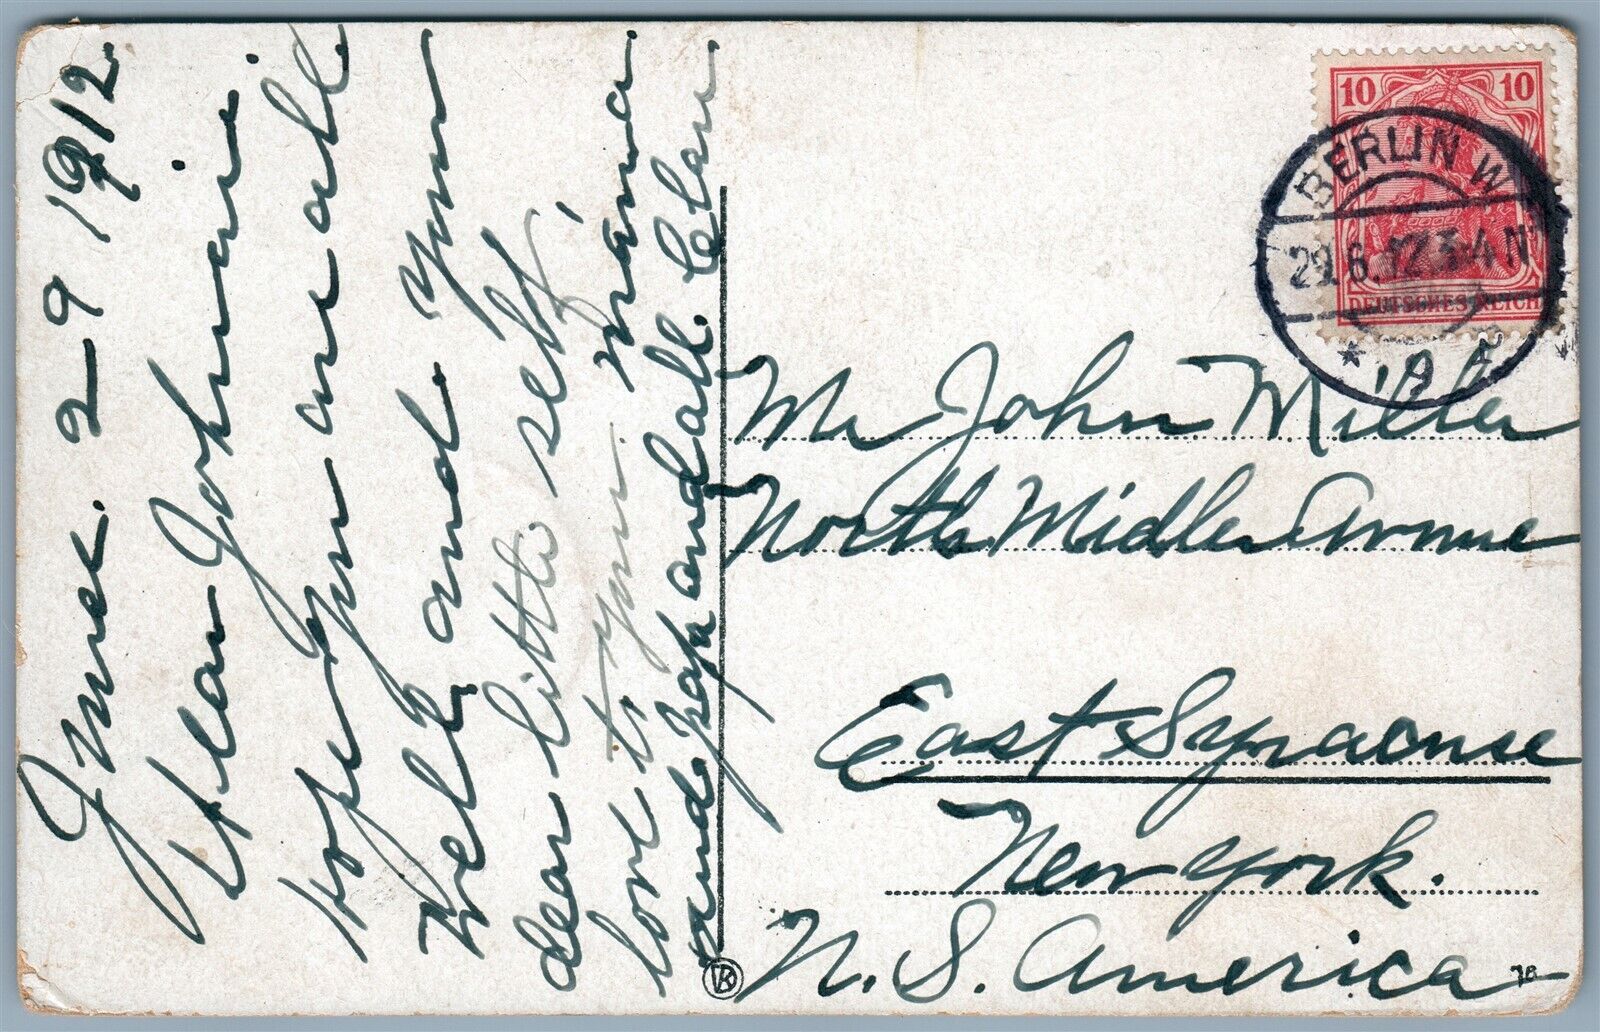 June. 2-9 1912.
Dear Johnnie.
hope you are all
well, and your
dear little self,
love to your mama
and papa and all. Clara
10 10
BERLIN W
29.6.12.3-4 N
DEUTSCHES REICH
* 9
Mr John Miller
North Midler Avenue
East Syracuse
New York.
N. S. America
78